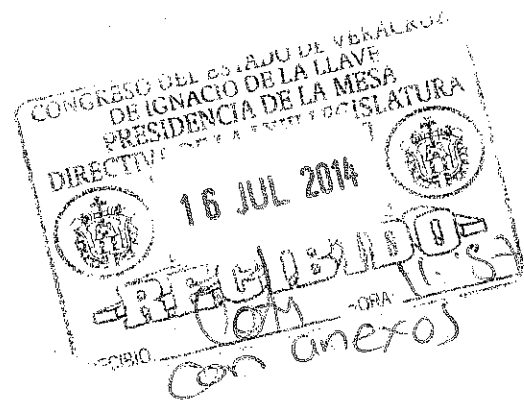 CONGRESO DEL ESTADO DE VERACRUZ
DE IGNACIO DE LA LLAVE
PRESIDENCIA DE LA MESA
DIRECTIVA DE LA LEGISLATURA
16 JUL 2014
RECIBIDO
HORA
RECIBIO
con anexos